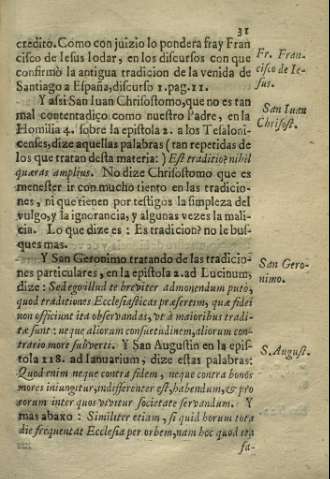 31
credito. Como con juizio lo pondera fray Fran
cisco de Iesus Iodar, en los discursos con que
confirmò la antigua tradicion de la venida de
Santiago a España, discurso 1. pag. 11.
Fr. Fran-
cisco de Ie-
sus.
Y assi San Iuan Chrisostomo, que no es tan
mal contentadiço como nuestro Padre, en la
Homilia 4. sobre la epistola 2. a los Tesaloni-
censes, dize aquellas palabras (tan repetidas de
los que tratan desta materia:) Est traditio? nihil
quæras amplius. No dize Chrisostomo que es
menester ir con mucho tiento en las tradicio-
nes, ni que tienen por testigos la simpleza del
vulgo, y la ignorancia, y algunas vezes la mali-
cia. Lo que dize es: Es tradicion? no le bus-
ques mas.
San Iuan
Chrisost.
Y San Geronimo tratando de las tradicio-
nes particulares, en la epistola 2. ad Lucinum,
dize: Sed ego illud te breviter admonendum puto,
quod traditiones Ecclesiasticas præsertim, quæ fidei
non officiunt ita observandas, vt à maioribus tradi-
tæ sunt: neque aliorum consuetudinem, aliorum con-
trario more subverti. Y San Augustin en la epis-
tola 118. ad Ianuarium, dize estas palabras:
Quod enim neque contra fidem, neque contra bonos
mores iniungitur, indifferenter est, habendum, & pro
eorum inter quos vivitur societate servandum. Y
mas abaxo: Similiter etiam, si quid horum tota
die frequentat Ecclesia per orbem, nam hoc quod ita
fa-
San Gero-
nimo.
S. August.